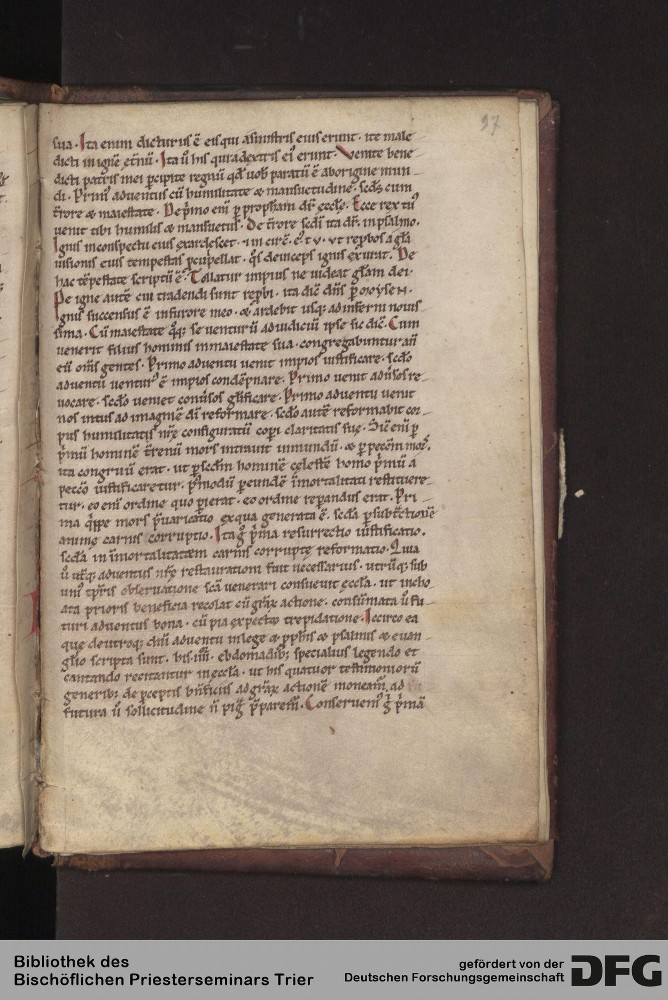 97
sua. Ita enim dicturus ē eis qui a sinistris eius erunt. ite male
dicti in ignē etnū. Ita ū his qui a dextris eiꝰ erunt. Venite bene
dicti patris mei ꝑcipite regnū qđ uob paratū ē ab origine mun
di. Primꝰ aduentus cū humilitate & mansuetudine. scđs cum
t̄rore & maiestate. De p̄mo enī ꝑ propham dr̄ eccłe. Ecce rex tuꝰ
uenit tibi humilis & mansuetus. De t̄rore scđi ita dr̄. in psalmo.
Ignis in conspectu eius exardescet. ut reꝓbos a gła
uisionis eius tempestas ꝑcellat. qͦs deinceps ignis exurat. De
hac tēpestate scriptū ē. Tollatur impius ne uideat głam dei.
De igne autē cui tradendi sunt repbi. ita dic̄ dn̄s ꝑ Moysen.
Ignis succensus ē in furore meo. & ardebit usq; ad inferni nouis
sima. Cū maiestate qͦq; se uenturū ad iudiciū ipse sic dic̄. Cum
uenerit filius hominis in maiestate sua. congregabuntur an̄
eū om̄s gentes. Primo aduentu uenit impios iustificare. scđo
aduentu ventur̾ ē impios condēpnare. Primo uenit adūsos re
uocare. scđo ueniet conūsos głificare. Primo aduentu uenit
nos intus ad imaginē di reformare. scđo autē reformabit cor
pus humilitatis nr̄e configuratū corꝑi claritatis sue. Sic̄ enī ꝑ
p̄mū hominē t̄renū mors intrauit in mundū. & ꝑ peccm̄ mors.
ita congruū erat. ut ꝑ scđm hominē celestē homo p̄mū a
pecco iustificaretur. p̄modū ꝑeundē īmortalitati restituere
tur. eo enī ordine quo ꝑierat. eo ordine reparandus erat. Pri
ma q̄ppe mors p̄uaricatio ex qua generata ē. scđa ꝑ subt̄ctionē
anime carnis corruptio. Ita gͦ p̄ma resurrectio iustificatio.
scđa in īmortalitatem carnis corrupte reformatio. Quia
ū utq; aduentus nr̄e restaurationi fuit necessarius. utrūq; sub
uniꝰ tp̄ris obseruatione scā uenerari consueuit eccła. ut incho
ata prioris beneficia recolat cū grāꝝ actione. consūmata ū fu
turi aduentus bona. cū pia expectet trepidatione. Iccirco ea
que de utroq; dn̄i aduentu in lege & pph̄is & psalmis & euan
glio scripta sunt. his iiii. ebdomadib; specialius legendo et
cantando recitantur in eccła. ut his quatuor testimonioꝝ
generib; de ꝑceptis bn̄ficiis ad grāꝝ actionē moneamꝰ. ad
futura ū sollicitudine n̄ pigͣ p̄parem̄. Conseruemꝰ gͦ p̄mā
Bibliothek des
Bischöflichen Priesterseminars Trier
gefördert von der
Deutschen Forschungsgemeinschaft
DFG